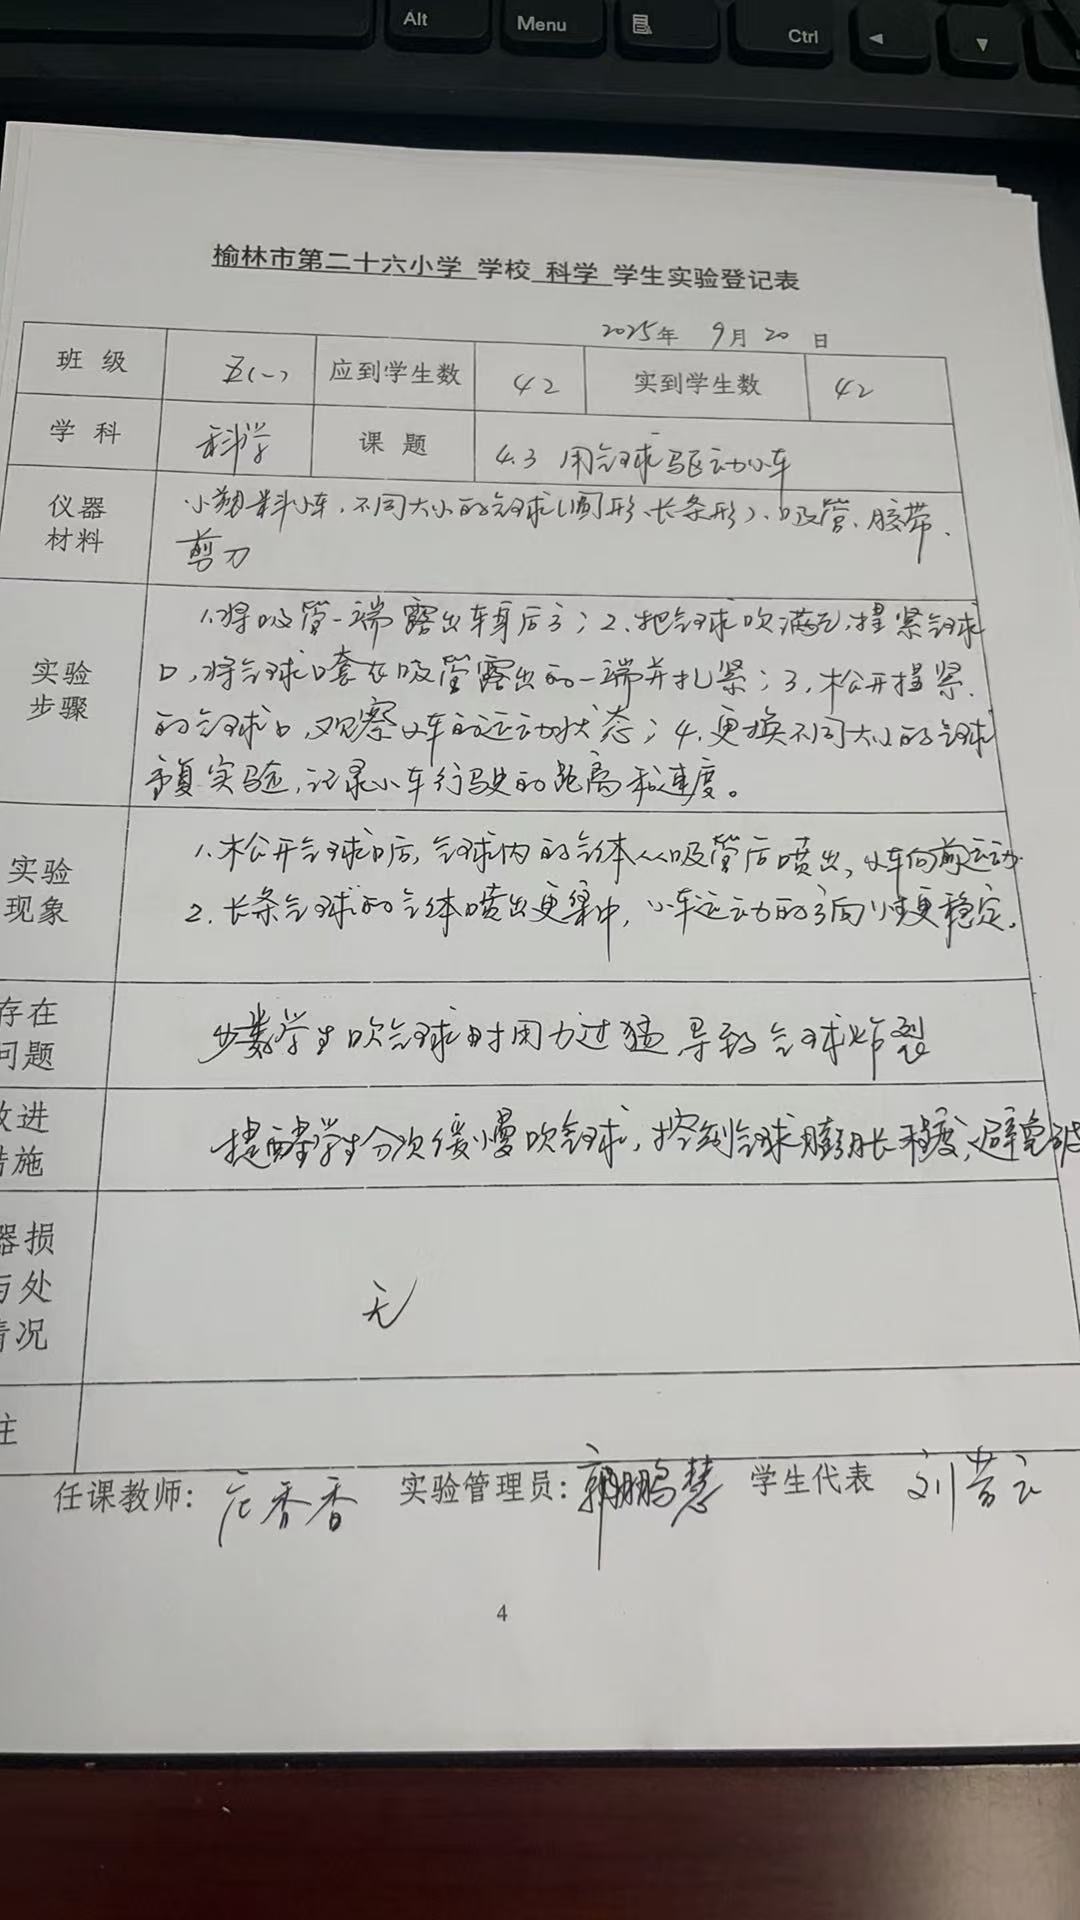 Alt
Menu
Ctrl
榆林市第二十六小学 学校 科学 学生实验登记表
2025年 9月 20 日
班级 五(一) 应到学生数 42 实到学生数 42
学科 科学 课题 4.3 用气球驱动小车
仪器材料 小塑料小车、不同大小的气球(圆形、长条形)、吸管、胶带、
剪刀
实验步骤 1.将吸管一端露出车身后方；2、把气球吹满气,捏紧气球
口,将气球口套在吸管露出的一端并扎紧；3、松开捏紧
的气球口,观察小车的运动状态；4.更换不同大小的气球
重复实验,记录小车行驶的距离和速度。
实验现象 1.松开气球口后,气球内的气体从吸管后喷出,小车向前运动
2.长条气球的气体喷出更集中,小车运动的方向性更稳定。
存在问题 少数学生吹气球时用力过猛,导致气球炸裂
改进措施 提醒学生分次缓慢吹气球,控制气球膨胀程度,避免破
器损
与处
情况 无
注
任课教师: 香香 实验管理员:郭鹏慧 学生代表 刘芳云
4